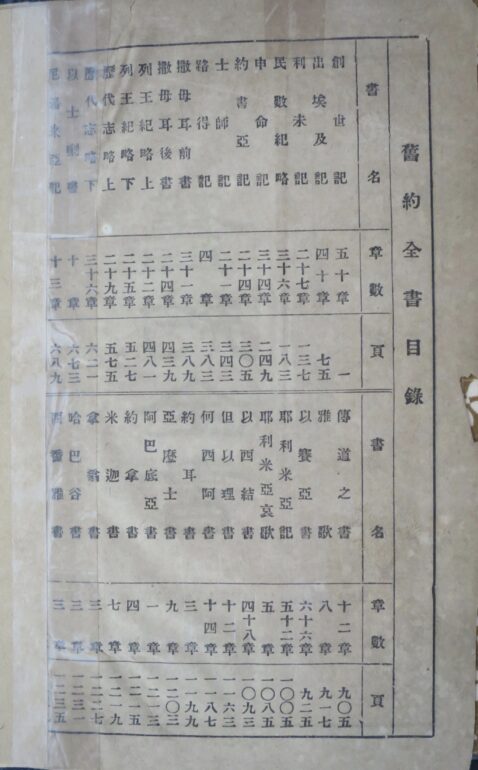 舊約全書目錄
書名 章數 頁 書名 章數 頁
創世記 五十章 一 傳道之書 十二章 九〇五
出埃及記 四十章 七五 雅歌 八章 九一七
利未記 二十七章 一三七 以賽亞書 六十六章 九二五
民數紀略 三十六章 一八三 耶利米亞記 五十二章 一〇〇五
申命記 三十四章 二四九 耶利米亞哀歌 五章 一〇八五
約書亞記 二十四章 三〇五 以西結書 四十八章 一〇九三
士師記 二十一章 三四三 但以理書 十二章 一一六三
路得記 四章 三八三 何西阿書 十四章 一一八七
撒母耳前書 三十一章 三八九 約耳書 三章 一一九九
撒母耳後書 二十四章 四三九 亞麼士書 九章 一二〇三
列王紀略上 二十二章 四八一 阿巴底亞書 一章 一二一三
列王紀略下 二十五章 五二七 約拿書 四章 一二一五
歷代志略上 二十九章 五七五 米迦書 七章 一二一九
歷代志略下 三十六章 六二一 書 三章 一二二七
十章 六七三 哈巴谷書 三章 一二三一
米亞記 十三章 六八九 番雅書 三章 一二三五